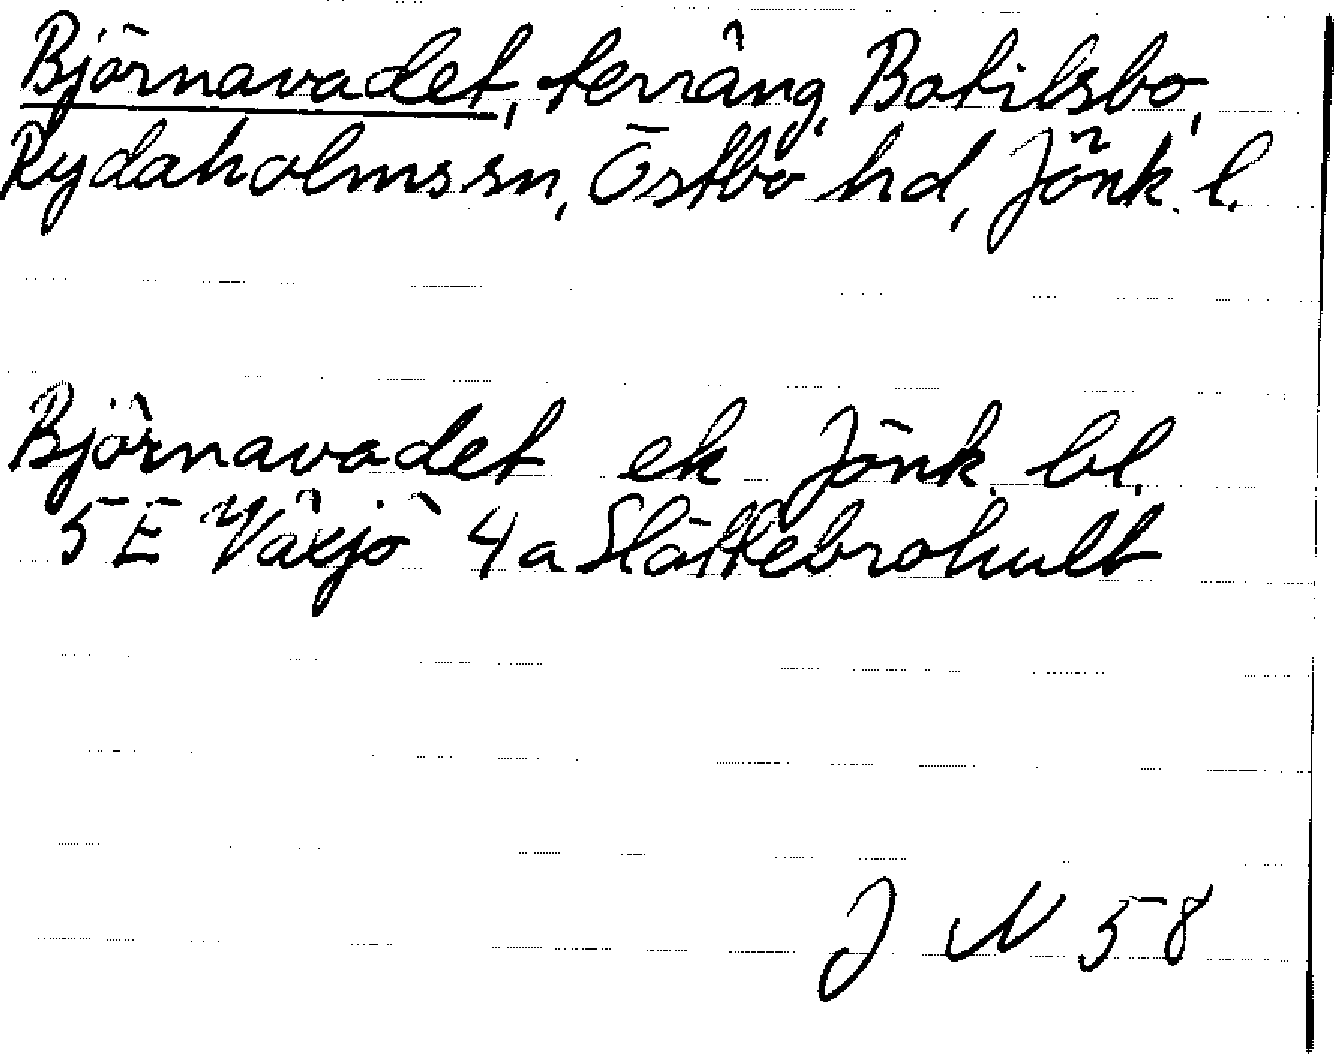 Björnavadet, terräng, Botilsbo,
Rydaholms sn, Östbo hd, Jönk. l.
Björnavadet ek Jönk. bl.
5E Växjö 4a Slättebrohult
J N 58